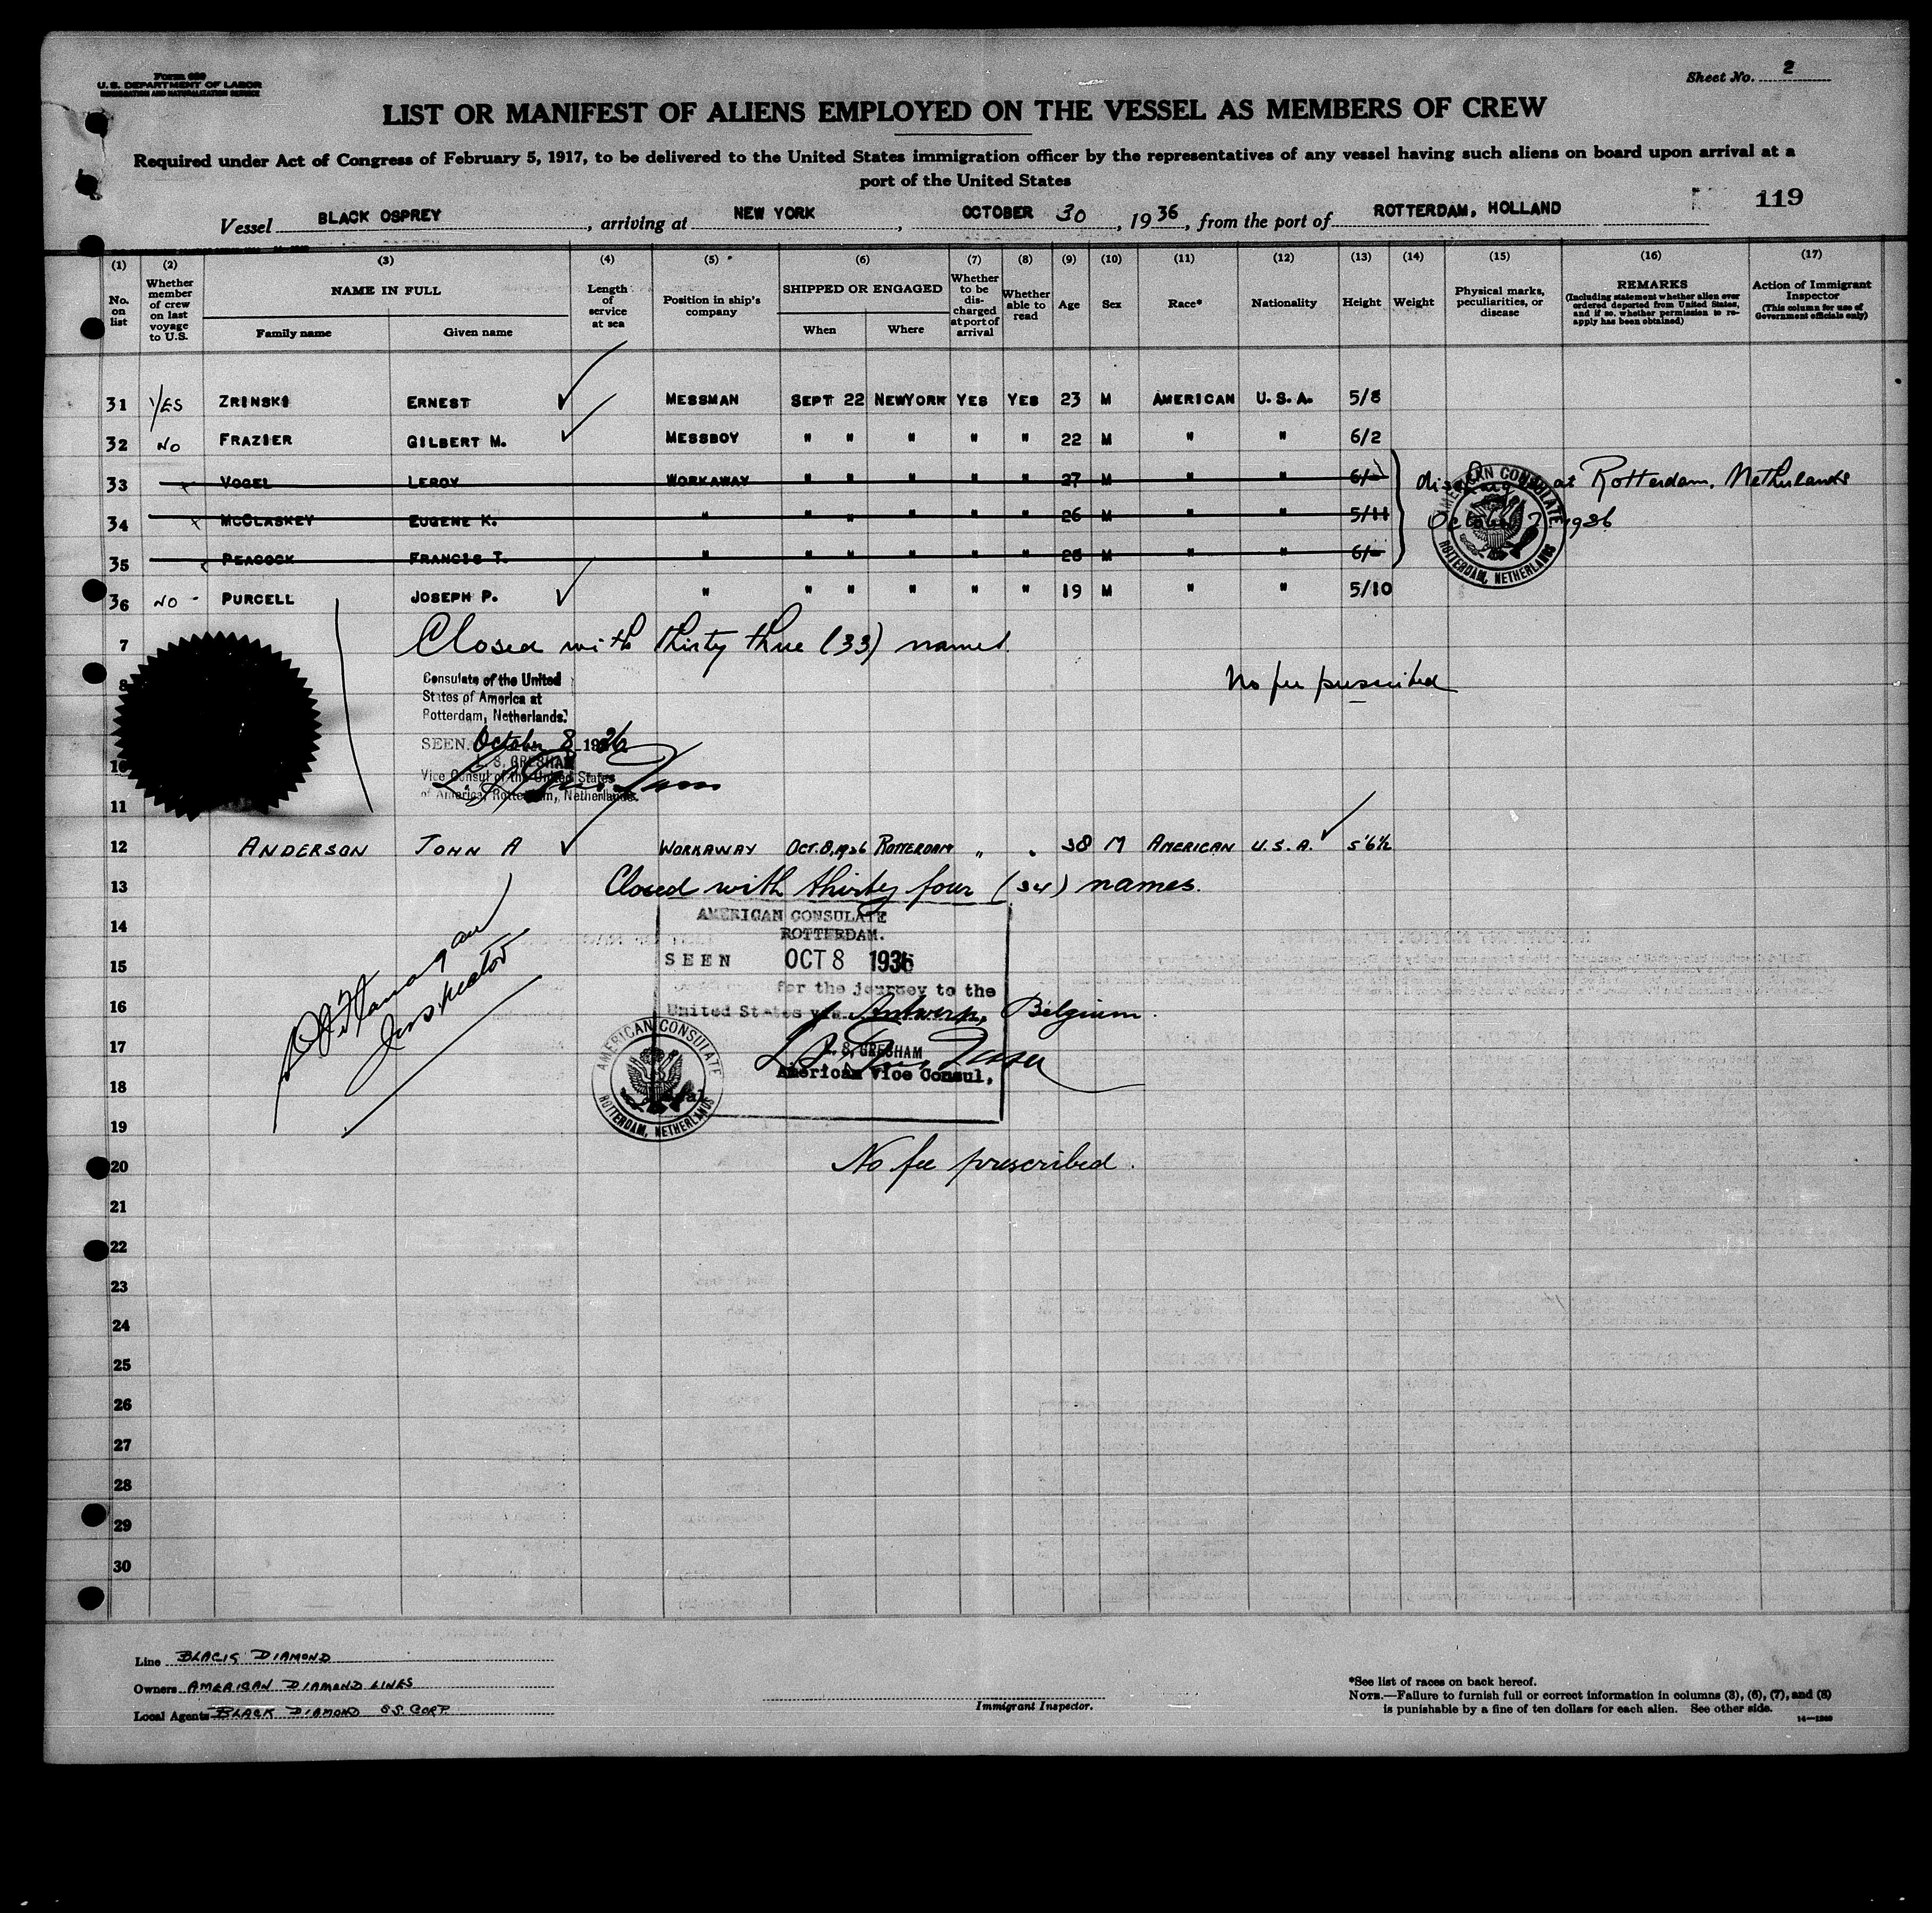 Form 680
U. S. DEPARTMENT OF LABOR
IMMIGRATION AND NATURALIZATION SERVICE
Sheet No. 2
LIST OR MANIFEST OF ALIENS EMPLOYED ON THE VESSEL AS MEMBERS OF CREW
Required under Act of Congress of February 5, 1917, to be delivered to the United States immigration officer by the representatives of any vessel having such aliens on board upon arrival at a
port of the United States
119
Vessel BLACK OSPREY, arriving at NEW YORK, OCTOBER 30, 1936, from the port of ROTTERDAM, HOLLAND
(1) (2) (3) (4) (5) (6) (7) (8) (9) (10) (11) (12) (13) (14) (15) (16) (17)
No. on list
Whether member of crew on last voyage to U.S.
NAME IN FULL
Family name Given name
Length of service at sea
Position in ship's company
SHIPPED OR ENGAGED
When Where
Whether to be discharged at port of arrival
Whether able to read
Age Sex Race* Nationality Height Weight
Physical marks, peculiarities, or disease
REMARKS
(Including statement whether alien ever ordered deported from United States, and if so, whether permission to reapply has been obtained)
Action of Immigrant Inspector
(This column for use of Government officials only)
31 YES ZRINSKI ERNEST MESSMAN SEPT 22 NEWYORK YES YES 23 M AMERICAN U.S.A. 5/8
32 NO FRAZIER GILBERT M. MESSBOY " " " " " 22 M " " 6/2
33 VOGEL LEROY WORKAWAY " " " " " 27 M " " 6/- at Rotterdam, Netherlands
34 MCCLASKEY EUGENE K. " " " " " " 26 M " " 5/11 October 7 1936
35 PEACOCK FRANCIS T. " " " " " " M " " 6/-
AMERICAN CONSULATE
ROTTERDAM, NETHERLANDS
36 NO - PURCELL JOSEPH P. " " " " " " 19 M " " 5/10
7 Closed with thirty three (33) names.
8 No fee prescribed
Consulate of the United
States of America at
Rotterdam, Netherlands.
SEEN. October 8 1936
10 L. S. GRESHAM
Vice Consul of the United States
of America, Rotterdam, Netherlands.
11
12 ANDERSON JOHN A WORKAWAY OCT. 8, 1936 ROTTERDAM " " 38 M AMERICAN U.S.A. 5'6½
13 Closed with thirty four (34) names.
14 AMERICAN CONSULATE
ROTTERDAM.
15 SEEN OCT 8 1936
for the journey to the
16 United States via Antwerp, Belgium.
17 L. S. GRESHAM
American Vice Consul,
18
AMERICAN CONSULATE
ROTTERDAM, NETHERLANDS
Inspector
19
20 No fee prescribed.
21
22
23
24
25
26
27
28
29
30
Line BLACK DIAMOND
Owners AMERICAN DIAMOND LINES
Local Agents BLACK DIAMOND S.S. CORP.
Immigrant Inspector.
*See list of races on back hereof.
NOTE.—Failure to furnish full or correct information in columns (3), (6), (7), and (8)
is punishable by a fine of ten dollars for each alien. See other side.
14—1240